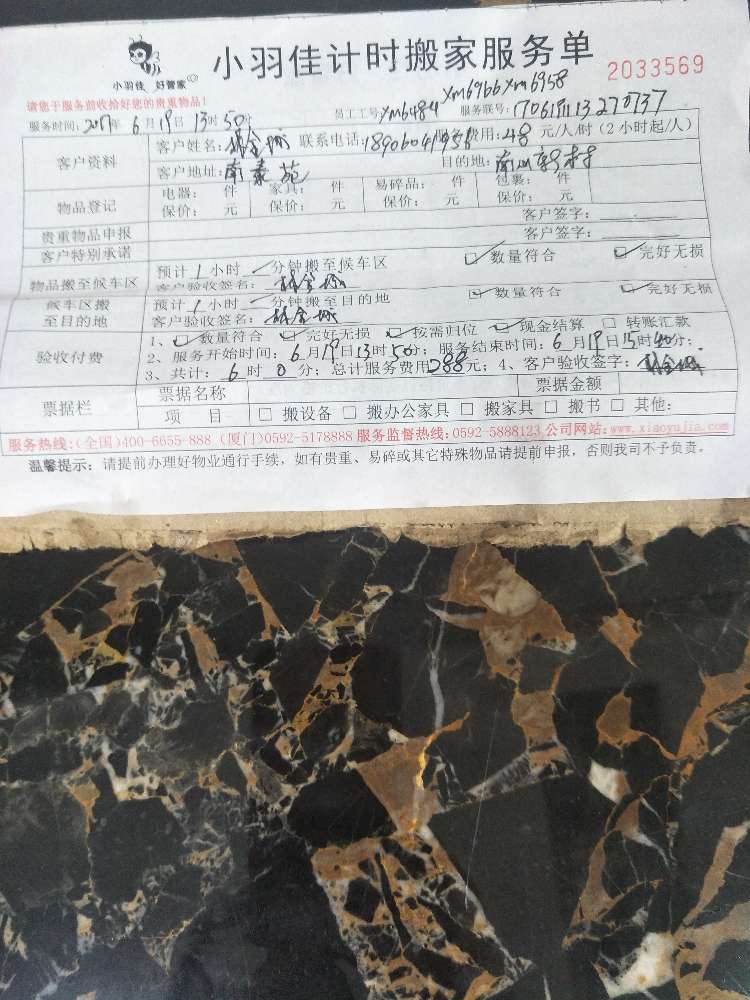 小羽佳 好管家
小羽佳计时搬家服务单
2033569
请您于服务前收给好您的贵重物品!
员工工号 xm6484 xm6966 xm6958 服务联号:
服务时间: 2017年 6月19日 13时50分
客户资料
客户姓名: 联系电话: 费用: 48 元/人/时 (2小时起/人)
客户地址: 目的地:
物品登记
电器: 件 家具: 件 易碎品: 件 包裹: 件
保价: 元 保价: 元 保价: 元 保价: 元
贵重物品申报 客户签字:
客户特别承诺 客户签字:
物品搬至候车区
预计1小时 分钟搬至候车区 数量符合 完好无损
客户验收签名:
候车区搬至目的地
预计1小时 分钟搬至目的地 数量符合 完好无损
客户验收签名:
验收付费
1、数量符合 完好无损 按需归位 现金结算 转账汇款
2、服务开始时间: 6月19日13时50分; 服务结束时间: 6月19日15时40分;
3、共计: 6时0分; 总计服务费用288元; 4、客户验收签字:
票据栏
票据名称 票据金额
项 目 搬设备 搬办公家具 搬家具 搬书 其他:
服务热线:(全国)400-6655-888 (厦门)0592-5178888 服务监督热线:0592-5888123 公司网站:www.xiaoyujia.com
温馨提示: 请提前办理好物业通行手续, 如有贵重、易碎或其它特殊物品请提前申报, 否则我司不予负责。